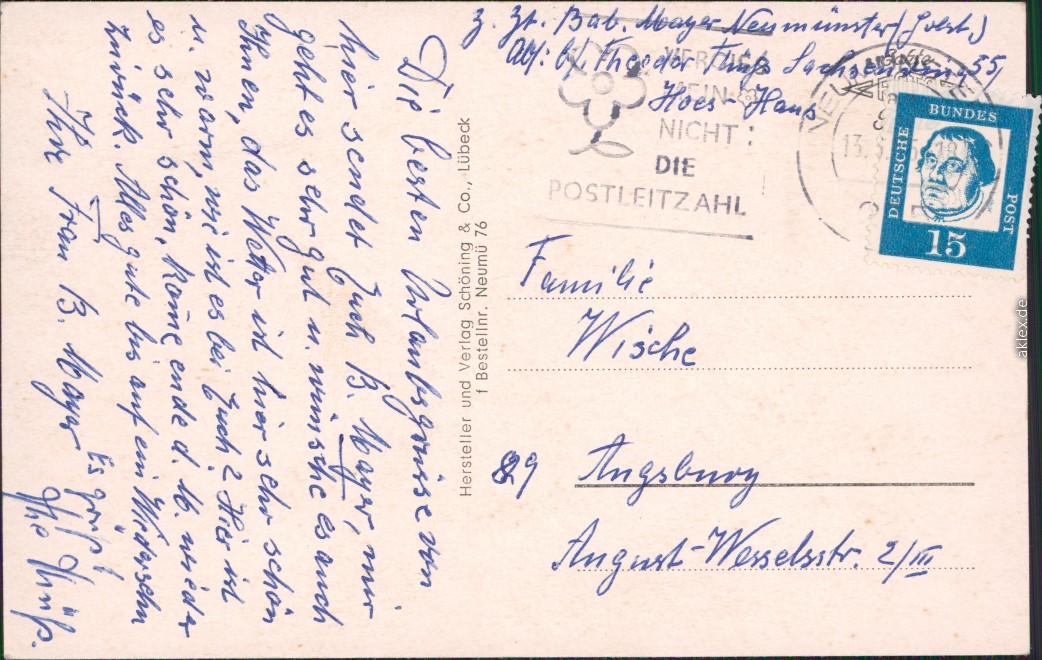 z. Zt. Bab. Mayer Neumünster/Holst.)
Abf: b/. Theodor Sachsenring 55,
Hoes-Haus
VERGISS
MEIN
NICHT:
DIE
POSTLEITZAHL
DEUTSCHE
BUNDES
POST
15
Die besten Urlaubsgrüße von
hier sendet Euch B. Mayer, mir
geht es sehr gut u. wünsche es auch
Ihnen, das Wetter ist hier sehr schön
u. warm, wie ist es bei Euch? Hier ist
es sehr schön, komme ende d. 16. wieder
zurück. Alles gute bis auf ein Wiedersehn
Ihre Frau B. Mayer
Es grüßt
Hersteller und Verlag Schöning & Co., Lübeck
f Bestellnr. Neumü 76
Familie
Wische
89 Augsburg
August-Wesselsstr. 2/III
aklex.de